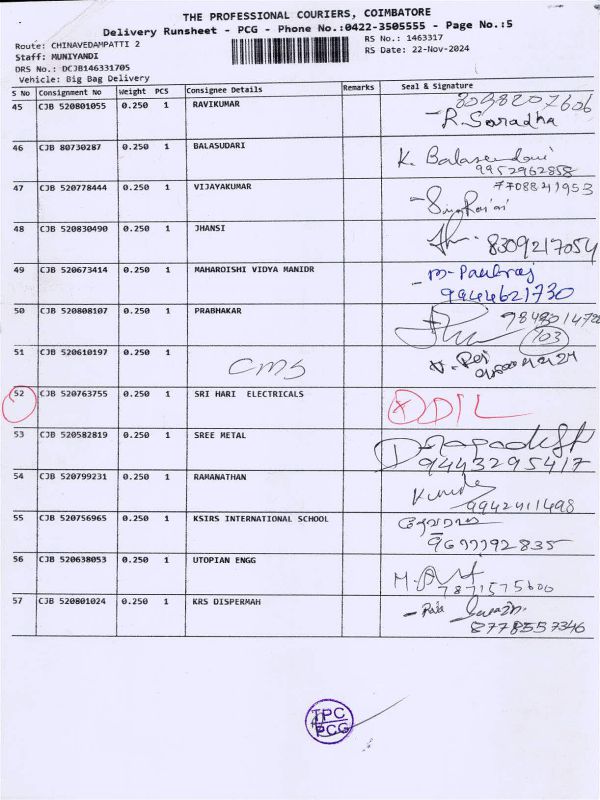 THE PROFESSIONAL COURIERS, COIMBATORE
Delivery Runsheet - PCG - Phone No.:0422-3505555 - Page No.:5
Route: CHINAVEDAMPATTI 2
RS No.: 1463317
Staff: MUNIYANDI
RS Date: 22-Nov-2024
DRS No.: DCJB146331705
Vehicle: Big Bag Delivery
S No Consignment No Weight PCS Consignee Details Remarks Seal & Signature
45 CJB 520801055 0.250 1 RAVIKUMAR 8098207606
R. Saradha
46 CJB 80730287 0.250 1 BALASUDARI K.
9952962858
47 CJB 520778444 0.250 1 VIJAYAKUMAR 7708841953
48 CJB 520830490 0.250 1 JHANSI 8309217054
49 CJB 520673414 0.250 1 MAHAROISHI VIDYA MANIDR m-Paulraj
9944621730
50 CJB 520808107 0.250 1 PRABHAKAR
103
51 CJB 520610197 0.250 1 CMS
52 CJB 520763755 0.250 1 SRI HARI ELECTRICALS X DIL
53 CJB 520582819 0.250 1 SREE METAL
9443295417
54 CJB 520799231 0.250 1 RAMANATHAN
9942411498
55 CJB 520756965 0.250 1 KSIRS INTERNATIONAL SCHOOL
56 CJB 520638053 0.250 1 UTOPIAN ENGG
7871575600
57 CJB 520801024 0.250 1 KRS DISPERMAH
8778557346
TPC
PCG